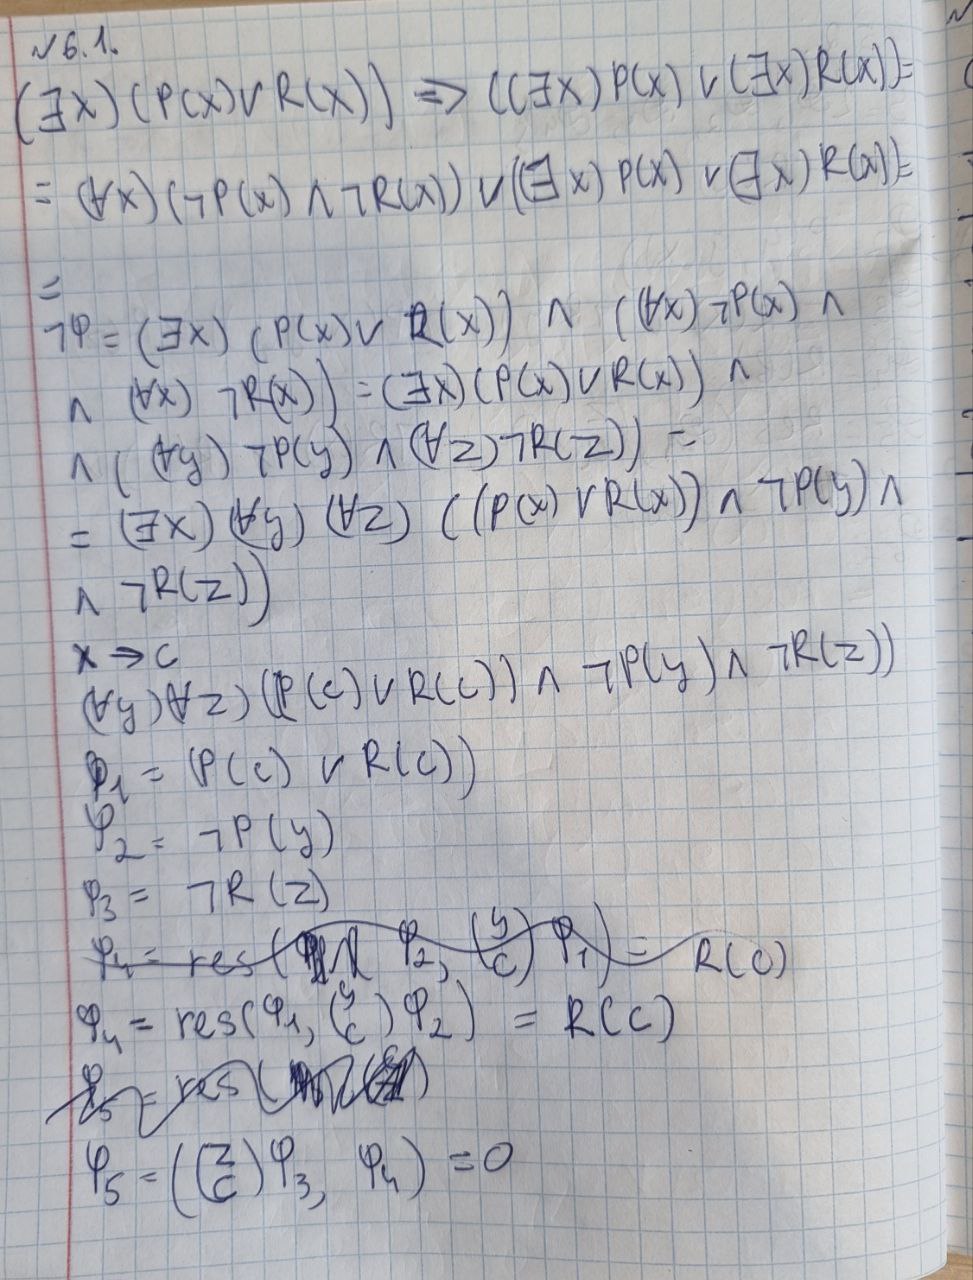 №6.1.
(∃x)(P(x)∨R(x)) ⇒ ((∃x)P(x)∨(∃x)R(x))=
= (∀x)(¬P(x)∧¬R(x))∨((∃x)P(x)∨(∃x)R(x))=
=
¬φ=(∃x)(P(x)∨R(x))∧((∀x)¬P(x)∧
∧(∀x)¬R(x))=(∃x)(P(x)∨R(x))∧
∧((∀y)¬P(y)∧(∀z)¬R(z))=
=(∃x)(∀y)(∀z)((P(x)∨R(x))∧¬P(y)∧
∧¬R(z))
x→c
(∀y)∀z)((P(c)∨R(c))∧¬P(y)∧¬R(z))
φ₁=(P(c)∨R(c))
φ₂=¬P(y)
φ₃=¬R(z)
φ₄=res( φ₂, (y/c) φ₁)=R(c)
φ₄=res(φ₁, (y/c) φ₂)=R(c)
φ₅=res(
φ₅=((z/c) φ₃, φ₄)=0